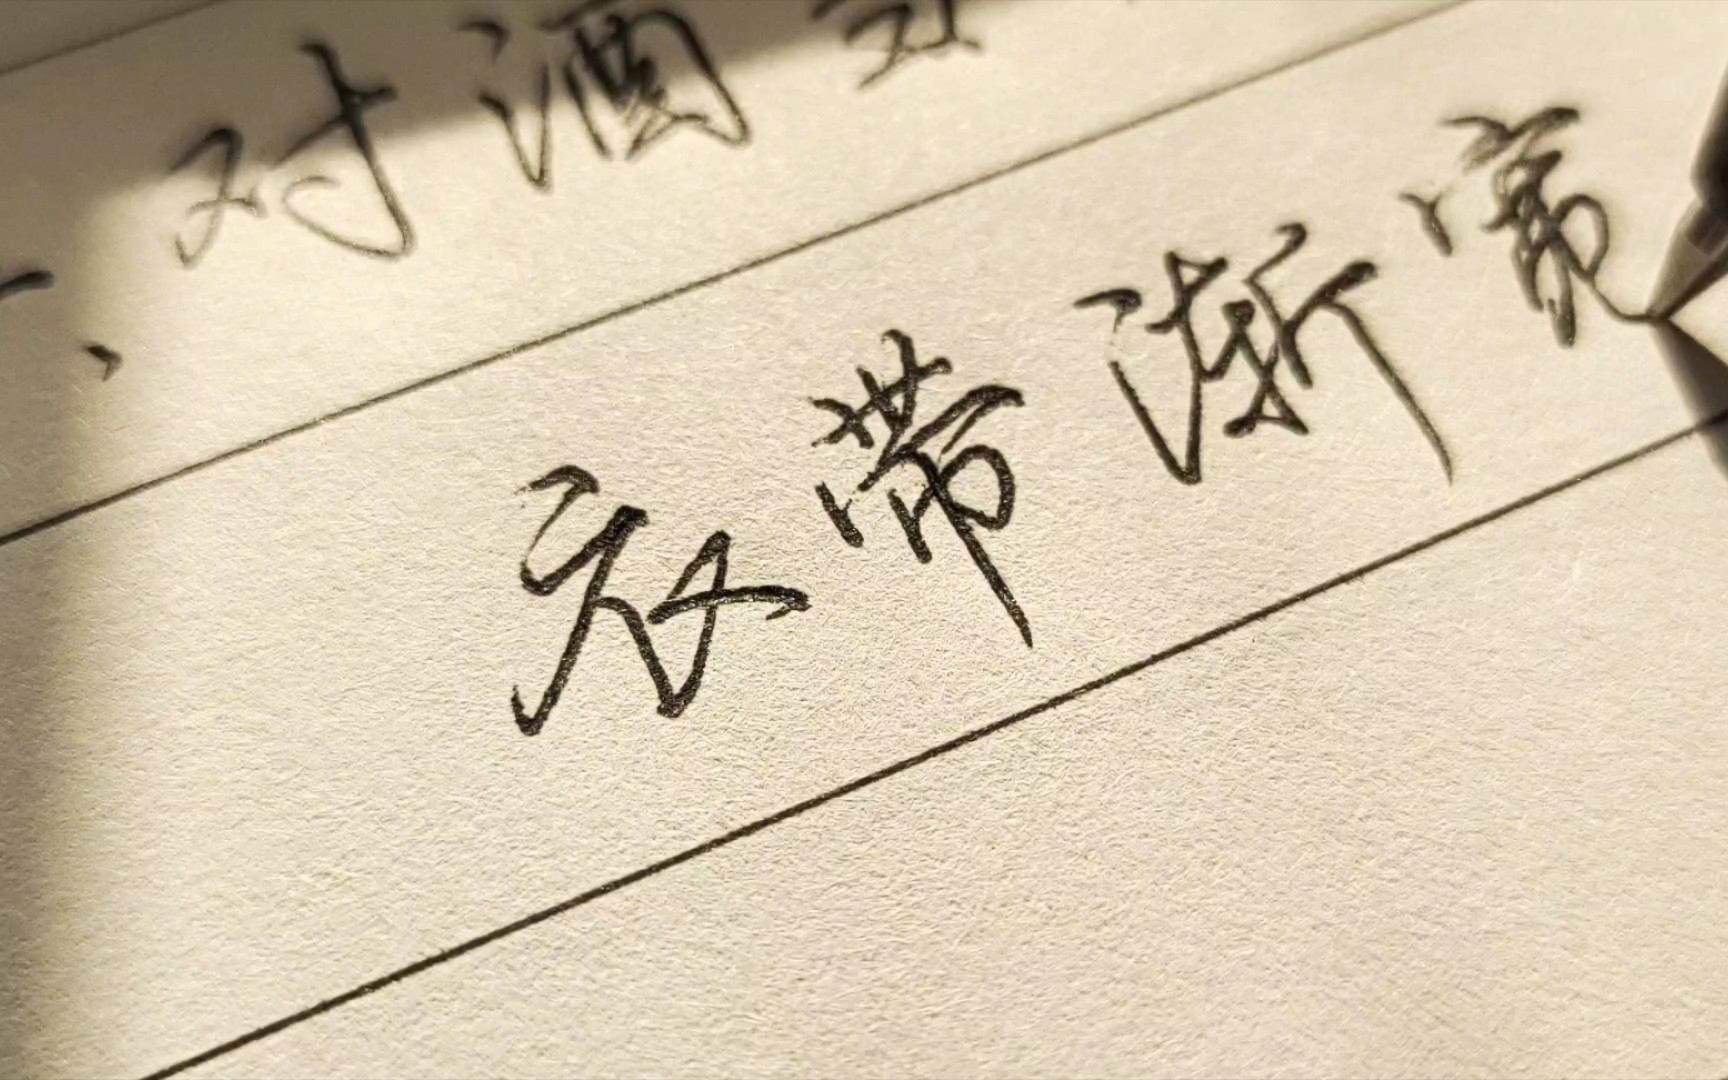 对酒
衣带渐宽